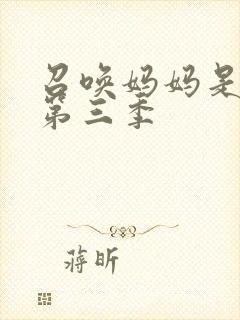 召唤妈妈是
第三季
蒋昕